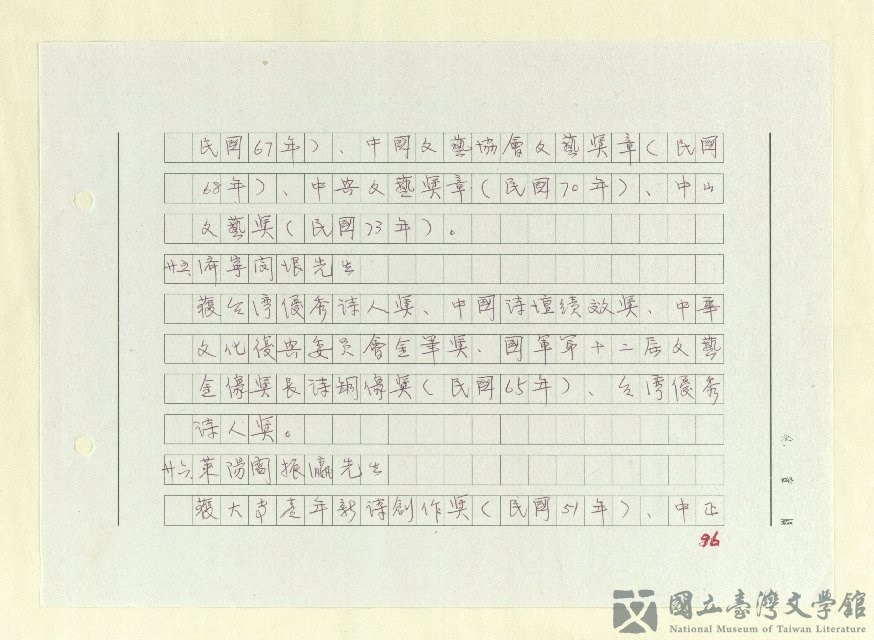 民國67年）、中國文藝協會文藝獎章（民國
68年）、中興文藝獎章（民國70年）、中山
文藝獎（民國73年）。
廿五、濟寧閻垠先生
獲台湾優秀诗人獎、中國诗壇績效獎、中華
文化復興委員會金筆獎、國軍第十二屆文藝
金像獎長诗銅像獎（民國65年）、台湾優秀
诗人獎。
廿六、萊陽閻振瀛先生
獲大專青年新诗創作獎（民國51年）、中正
96
國立臺灣文學館
National Museum of Taiwan Literature